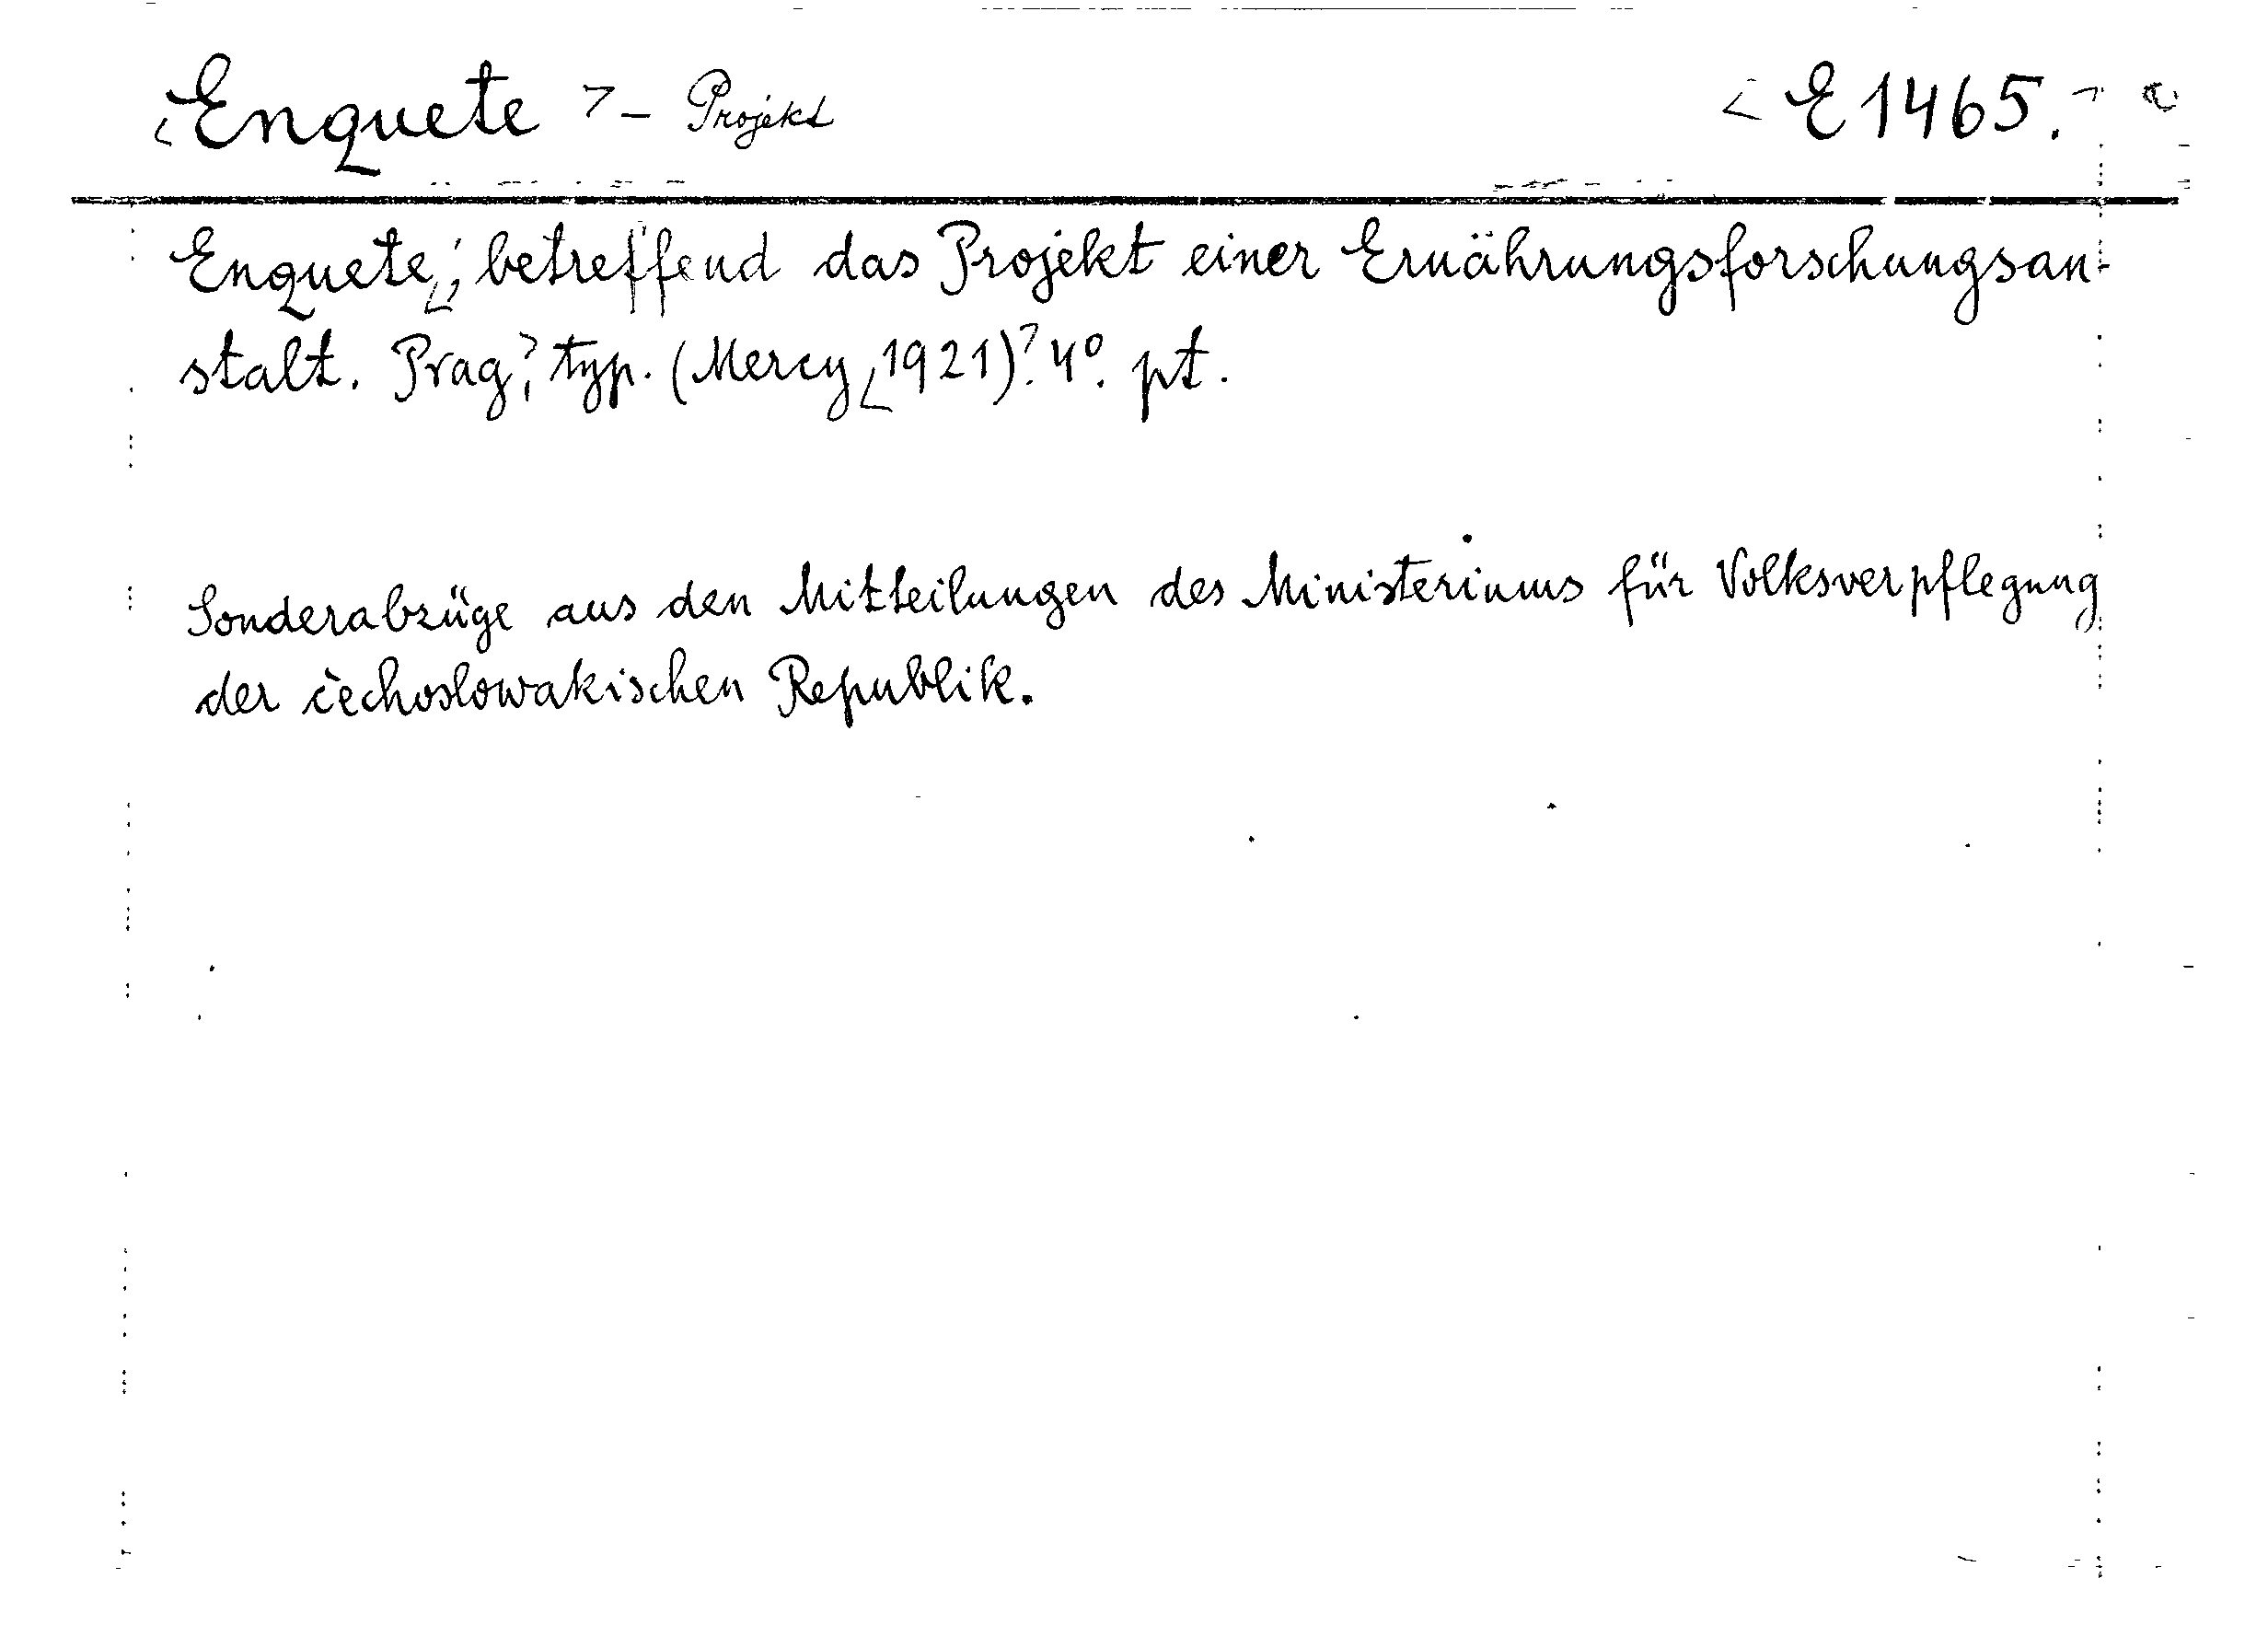 Enquete - Projekt E 1465.
Enquete, betreffend das Projekt einer Ernährungsforschungsan-
stalt. Prag, typ. (Mercy 1921). 4°. pt.
Sonderabzüge aus den Mitteilungen des Ministeriums für Volksverpflegung
der čechoslowakischen Republik.